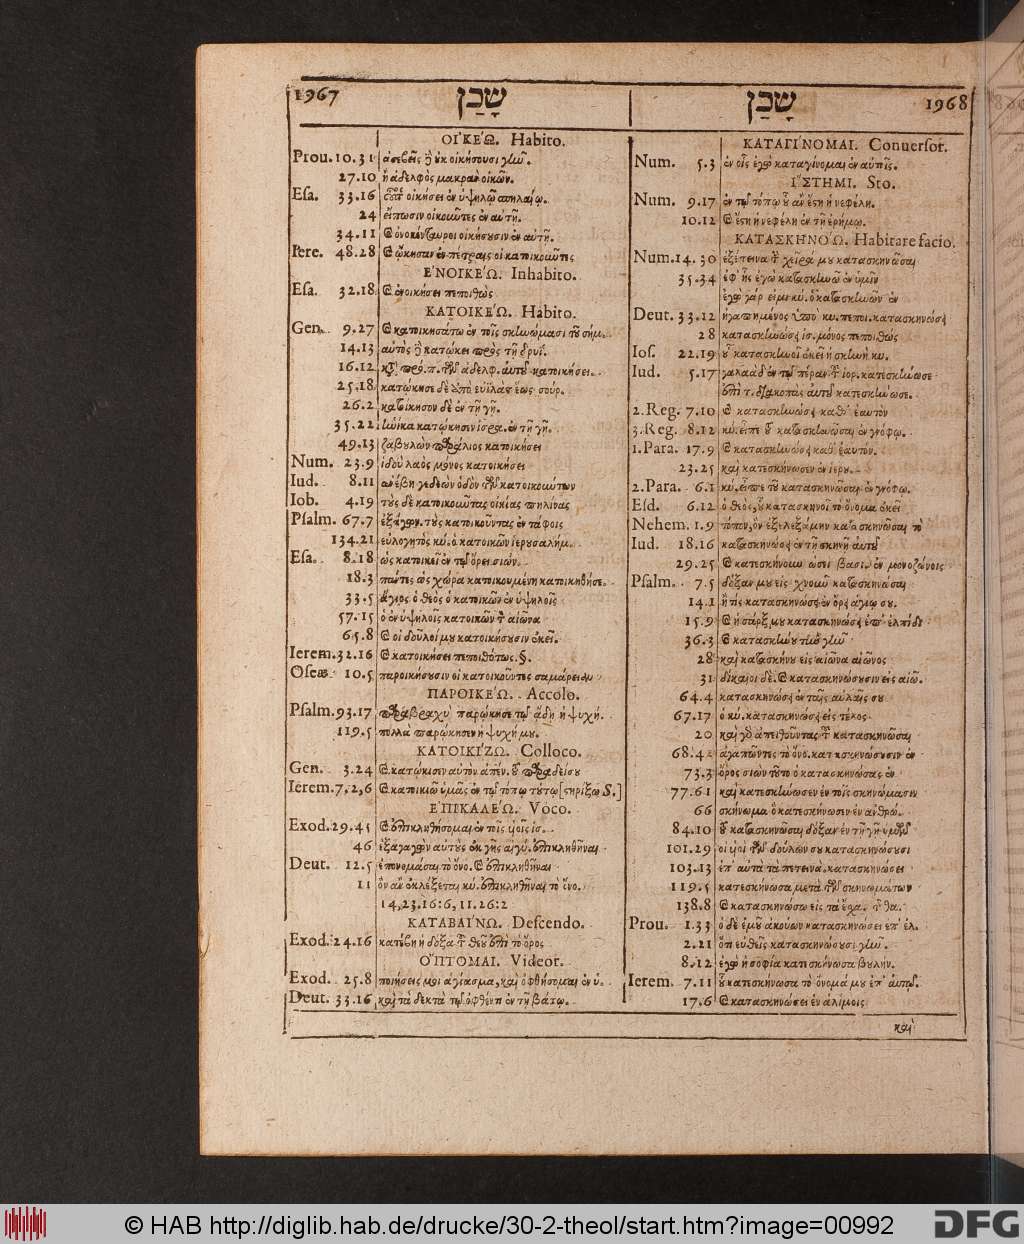 1967 שָׁכַן
ΟἸΚΕ´Ω. Habito.
Prou. 10.31 ἀσεβεῖς ἢ οὐκ οἰκήσουσι γῆν.
27.10 ἢ ἀδελφὸς μακρὰν οἰκῶν.
Esa. 33.16 οὗτος οἰκήσει ἐν ὑψηλῷ σπηλαίῳ.
24 εἴπωσιν οἰκοιῶτες ἐν αὐτῇ.
34.11 ὀνοκένταυροι οἰκήσουσιν ἐν αὐτῇ.
Pere. 48.28 ᾤκησαν ἐν πέτραις οἱ κατοικοιῶτες
ἘΝΟΙΚΕ´Ω. Inhabito.
Esa. 32.18 ἐνοικήσει πεποιθὼς
ΚΑΤΟΙΚΕ´Ω. Habito.
Gen. 9.27 κατοικησάτω ἐν τοῖς σκηνώμασι τοῦ σήμ.
14.13 αὐτὸς ἢ κατώκει πρὸς τῇ δρυΐ.
16.12 κατὰ πρόσ.π. τῶν ἀδελφ. αὐτοῦ κατοικήσει.
25.18 κατῴκησε δὲ ἀπὸ εὐϊλὰτ ἕως σούρ.
26.2 κατοίκησον δὲ ἐν τῇ γῇ.
35.22 ἡνίκα κατῴκησεν ἰσρα. ἐν τῇ γῇ.
49.13 ζαβυλὼν παράλιος κατοικήσει
Num. 23.9 ἰδοὺ λαὸς μόνος κατοικήσει
Iud. 8.11 ἀνέβη γεδεὼν ὁδὸν τῶν κατοικούντων
Iob. 4.19 τοὺς δὲ κατοικοῦντας οἰκίας πηλίνας
Psalm. 67.7 ἐξάγων. τοὺς κατοικοῦντας ἐν τάφοις
134.21 εὐλογητὸς κύ. ὁ κατοικῶν ἱερουσαλήμ.
Esa. 8.18 ὡς κατοικεῖ ἐν τῷ ὄρει σιών.
18.3 πάντες ὡς χώρα κατοικουμένη κατοικηθήσε.
33.5 ἅγιος ὁ θεὸς ὁ κατοικῶν ἐν ὑψηλοῖς
57.15 ὁ ἐν ὑψηλοῖς κατοικῶν τὸν αἰῶνα
65.8 οἱ δοῦλοί μου κατοικήσουσιν ἐκεῖ.
Ierem. 32.16 κατοικήσει πεποιθότως. §.
Oseæ 10.5 παροικήσουσιν οἱ κατοικοῦντες σαμάρειαν
ΠΑΡΟΙΚΕ´Ω. Accolo.
Psalm. 93.17 παραβραχὺ παρῴκησε τῷ ᾅδῃ ἡ ψυχή.
119.5 πολλὰ παρῴκησεν ἡ ψυχή μου.
ΚΑΤΟΙΚΙ´ΖΩ. Colloco.
Gen. 3.24 κατῴκισεν αὐτὸν ἀπέν. τοῦ παραδείσου
Ierem. 7,2,6 κατοικιῶ ὑμᾶς ἐν τῷ τόπῳ τούτῳ [στηρίξω S.]
ἘΠΙΚΑΛΕ´Ω. Voco.
Exod. 29.45 ἐπικληθήσομαι ἐν τοῖς υἱοῖς ἰσ.
46 ἐξαγαγὼν αὐτοὺς ἐκ γῆς αἰγύ. ἐπικληθῆναι
Deut. 12.5 ἐπονομάσαι τὸ ὄνο. ἐπικληθῆναι
11 ὃν ἂν ἐκλέξεται κύ. ἐπικληθῆναι τὸ ὄνο.
14,23.16:6,11.26:2
ΚΑΤΑΒΑΙ´ΝΩ. Descendo.
Exod. 24.16 κατέβη ἡ δόξα τοῦ θεοῦ ἐπὶ τὸ ὄρος
ὌΠΤΟΜΑΙ. Videor.
Exod. 25.8 ποιήσεις μοι ἁγίασμα, καὶ ὀφθήσομαι ἐν ὑ.
Deut. 33.16 καὶ τὰ δεκτὰ τῷ ὀφθέντι ἐν τῇ βάτῳ.
שָׁכַן 1968
ΚΑΤΑΓΙ´ΝΟΜΑΙ. Conuersor.
Num. 5.3 ἐν οἷς ἐγὼ καταγίνομαι ἐν αὐτοῖς.
ἽΣΤΗΜΙ. Sto.
Num. 9.17 ἐν τῷ τόπῳ οὗ ἂν ἔστη ἡ νεφέλη.
10.12 ἔστη ἡ νεφέλη ἐν τῇ ἐρήμῳ.
ΚΑΤΑΣΚΗΝΟ´Ω. Habitare facio.
Num. 14.30 ἐξέτεινα τὴν χεῖρά μου κατασκηνῶσαι
35.34 ἐφ' ἧς ἐγὼ κατασκηνῶ ἐν ὑμῖν
ἐγὼ γάρ εἰμι κύ. ὁ κατασκηνῶν ἐν
Deut. 33.12 ἠγαπημένος ὑπὸ κυ. πεποι. κατασκηνώσει
28 κατασκηνώσει ἰσ. μόνος πεποιθὼς
Ios. 22.19 οὗ κατασκηνοῖ ἐκεῖ ἡ σκηνὴ κυ.
Iud. 5.17 γαλαὰδ ἐν τῷ πέραν τοῦ ἰορ. κατεσκήνωσε
ἐπὶ τ. διακοπὰς αὐτοῦ κατεσκήνωσε.
2.Reg. 7.10 κατασκηνώσει καθ' ἑαυτὸν
3.Reg. 8.12 κύ. εἶπε τοῦ κατασκηνῶσαι ἐν γνόφῳ.
1.Para. 17.9 κατασκηνώσει καθ' ἑαυτόν.
23.25 καὶ κατεσκήνωσεν ἐν ἱερου.
2.Para. 6.1 κύ. εἶπε τοῦ κατασκηνῶσαι ἐν γνόφῳ.
Esd. 6.12 ὁ θεὸς, οὗ κατασκηνοῖ τὸ ὄνομα ἐκεῖ
Nehem. 1.9 τόπον, ὃν ἐξελεξάμην κατασκηνῶσαι τὸ
Iud. 18.16 κατασκηνώσει ἐν τῇ σκηνῇ αὐτοῦ
29.25 κατεσκήνουν ὡσεὶ βασι. ἐν μονοζώνοις
Psalm. 7.5 δόξαν μου εἰς χνοῦν κατασκηνώσαι
14.1 ἢ τίς κατασκηνώσει ἐν ὄρει ἁγίῳ σου.
15.9 ἡ σάρξ μου κατασκηνώσει ἐπ' ἐλπίδι
36.3 κατασκήνου τὴν γῆν
28 καὶ κατασκήνου εἰς αἰῶνα αἰῶνος
31 δίκαιοι δὲ. κατασκηνώσουσιν εἰς αἰῶ.
64.4 κατασκηνώσει ἐν ταῖς αὐλαῖς σου
67.17 ὁ κύ. κατασκηνώσει εἰς τέλος
20 καὶ γὰρ ἀπειθοῦντας τοῦ κατασκηνῶσαι
68.42 ἀγαπῶντες τὸ ὄνο. κατασκηνώσουσιν ἐν
73.3 ὄρος σιὼν τοῦτο ὃ κατασκηνώσας ἐν
77.61 καὶ κατεσκήνωσεν ἐν τοῖς σκηνώμασιν
66 σκήνωμα ὃ κατεσκήνωσεν ἐν ἀνθρώ.
84.10 τοῦ κατασκηνῶσαι δόξαν ἐν τῇ γῇ ἡμῶν
101.29 οἱ υἱοὶ τῶν δούλων σου κατασκηνώσουσι
103.13 ἐπ' αὐτὰ τὰ πετεινὰ κατασκηνώσει
119.5 κατεσκήνωσα μετὰ τῶν σκηνωμάτων
138.8 κατασκηνώσω εἰς τὰ ἔσχα. τῆς θα.
Prou. 1.33 ὁ δὲ ἐμοῦ ἀκούων κατασκηνώσει ἐπ' ἐλ.
2.21 ὅτι εὐθεῖς κατασκηνώσουσι γῆν.
8.12 ἐγὼ ἡ σοφία κατεσκήνωσα βουλήν.
Ierem. 7.11 οὗ κατεσκήνωσα τὸ ὄνομά μου ἐπ' αὐτῷ.
17.6 κατασκηνώσει ἐν ἁλίμοις
καὶ
© HAB http://diglib.hab.de/drucke/30-2-theol/start.htm?image=00992
DFG